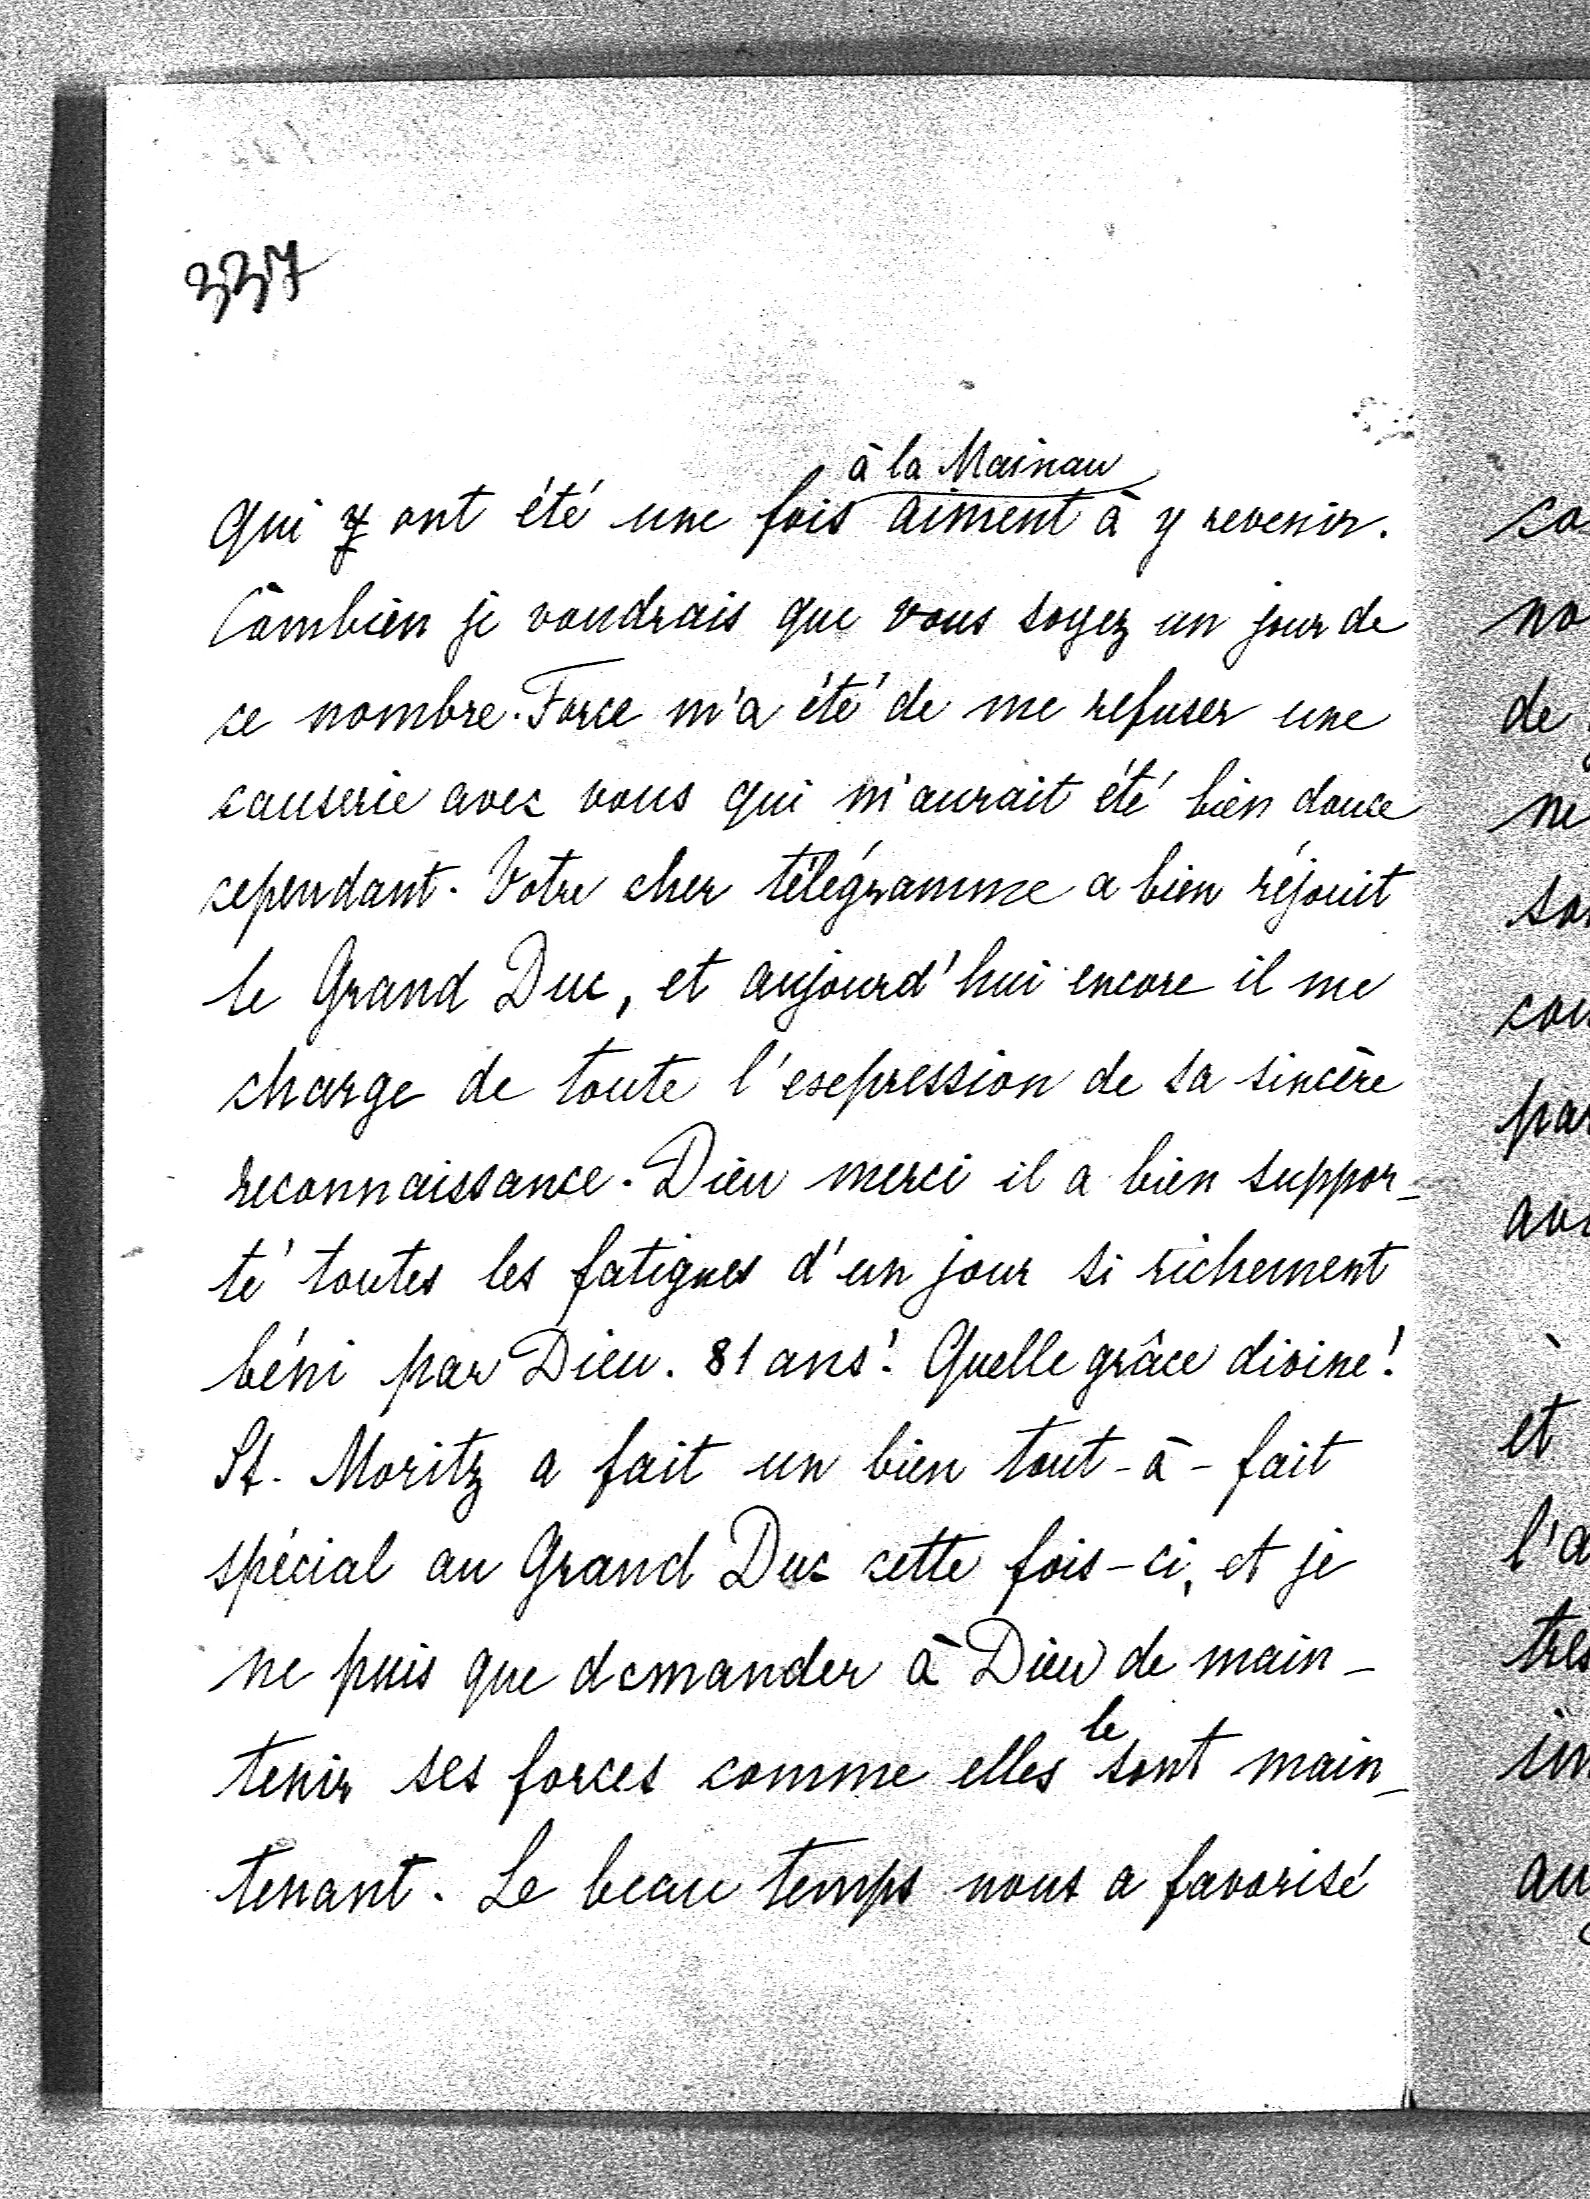 337
à la Mainau
qui y ont été une fois aiment à y revenir.
Combien je voudrais que vous soyez un jour de
ce nombre. Force m'a été de me refuser une
causerie avec vous qui m'aurait été bien douce
cependant. Votre cher télégramme a bien réjouit
le Grand Duc, et aujourd'hui encore il me
charge de toute l'expression de sa sincère
reconnaissance. Dieu merci il a bien suppor-
té toutes les fatigues d'un jour si richement
béni par Dieu. 81 ans! Quelle grâce divine!
St. Moritz a fait un bien tout-à-fait
spécial au Grand Duc cette fois-ci, et je
ne puis que demander à Dieu de main-
tenir ses forces comme elles le sont main-
tenant. Le beau temps nous a favorisé